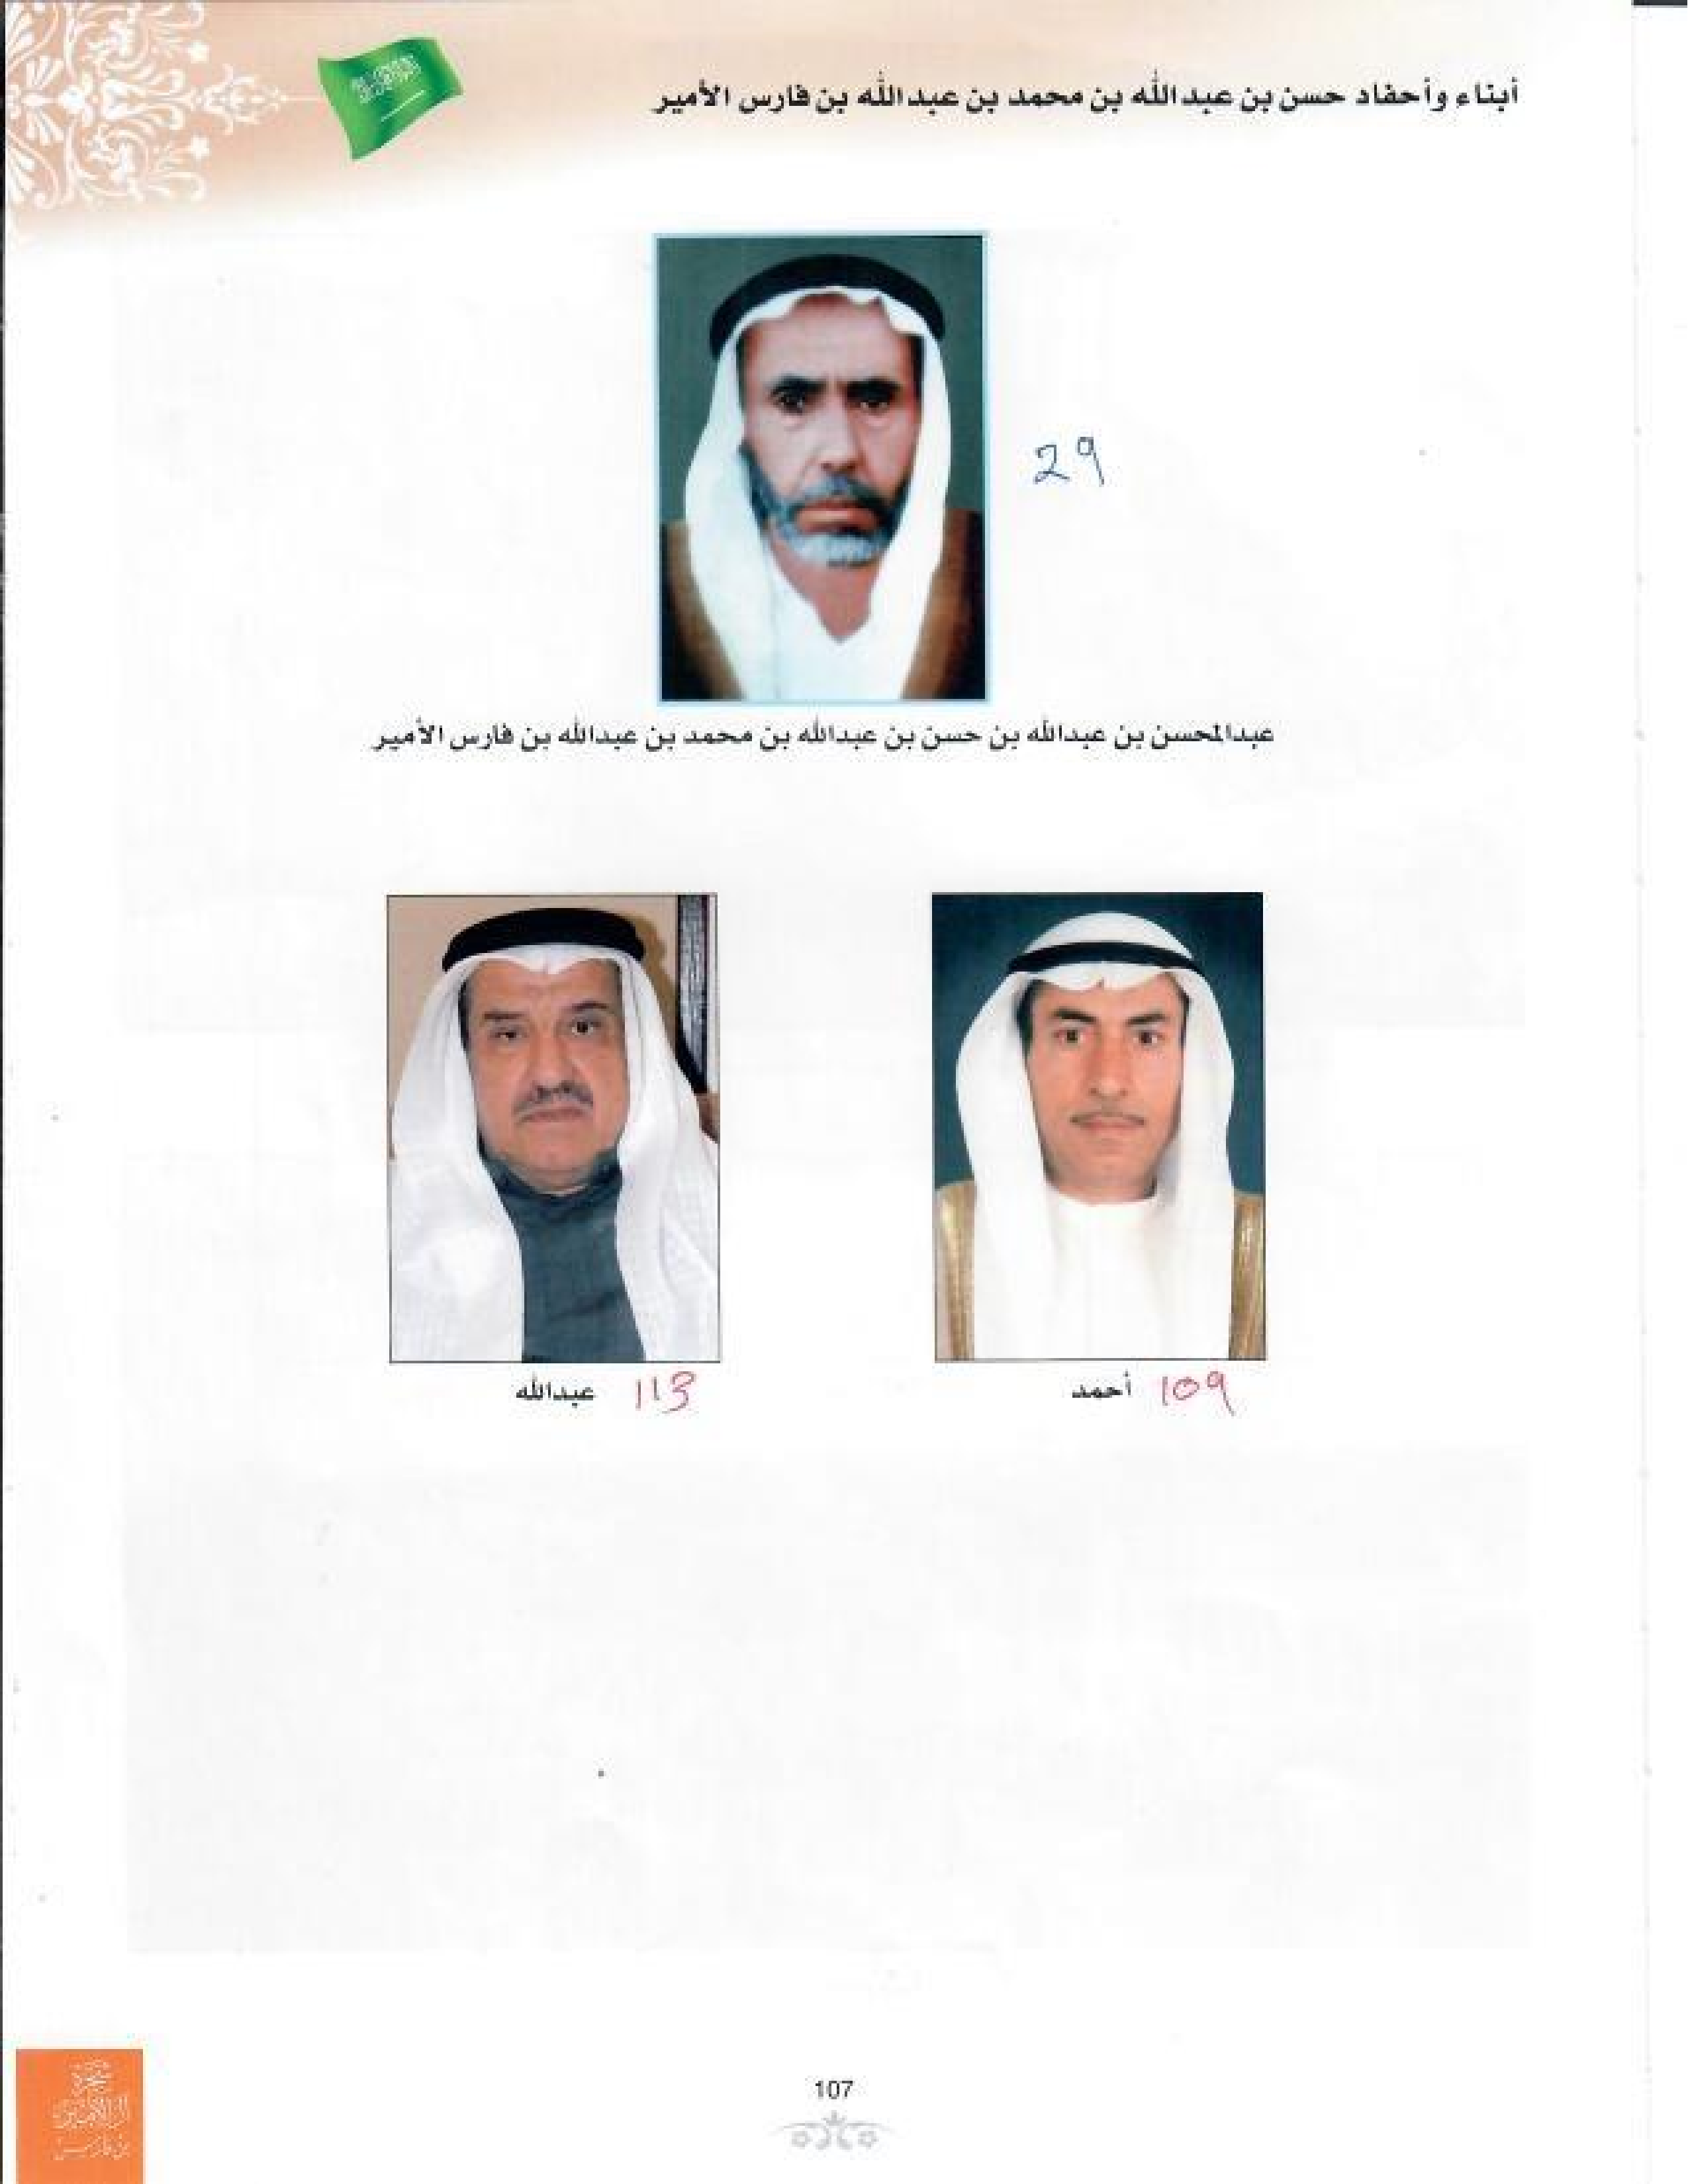 أبناء وأحفاد حسن بن عبدالله بن محمد بن عبدالله بن فارس الأمير
29
عبدالمحسن بن عبدالله بن حسن بن عبدالله بن محمد بن عبدالله بن فارس الأمير
أحمد 109
عبدالله 113
107
شجرة
آل الأمير
بن فارس